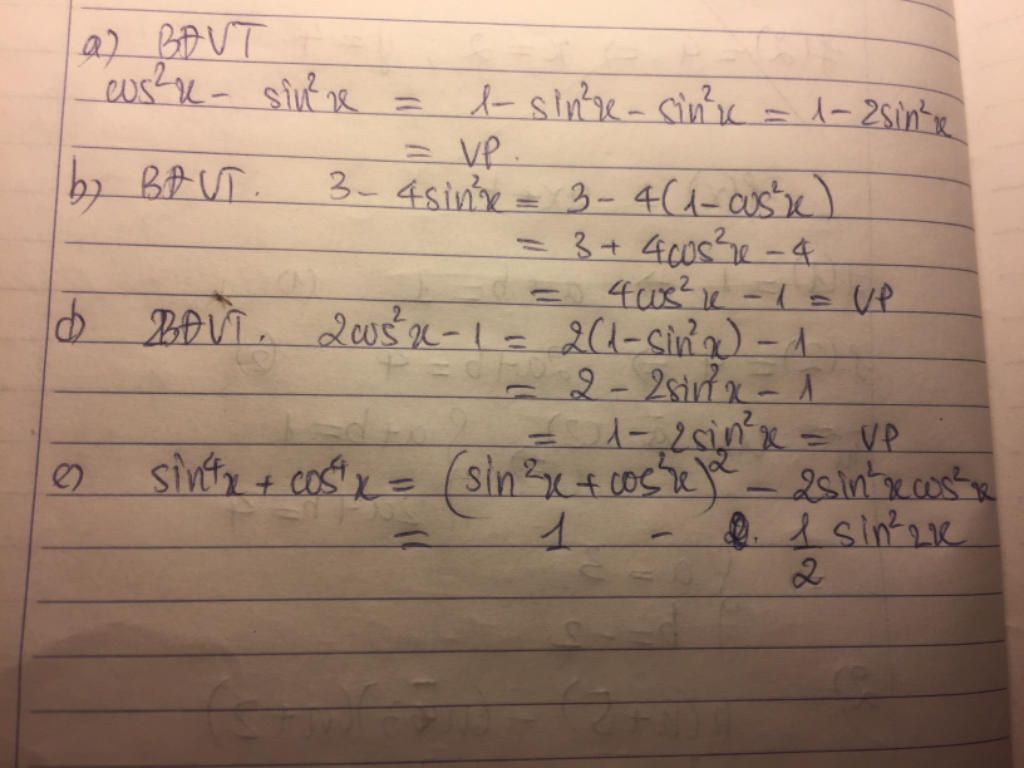 a) BĐVT
cos²x - sin²x = 1 - sin²x - sin²x = 1 - 2sin²x
= VP.
b) BĐVT. 3 - 4sin²x = 3 - 4(1 - cos²x)
= 3 + 4cos²x - 4
= 4cos²x - 1 = VP
d) BĐVT. 2cos²x - 1 = 2(1 - sin²x) - 1
= 2 - 2sin²x - 1
= 1 - 2sin²x = VP
e) sin⁴x + cos⁴x = (sin²x + cos²x)² - 2sin²xcos²x
= 1 - . 1/2 sin²2x